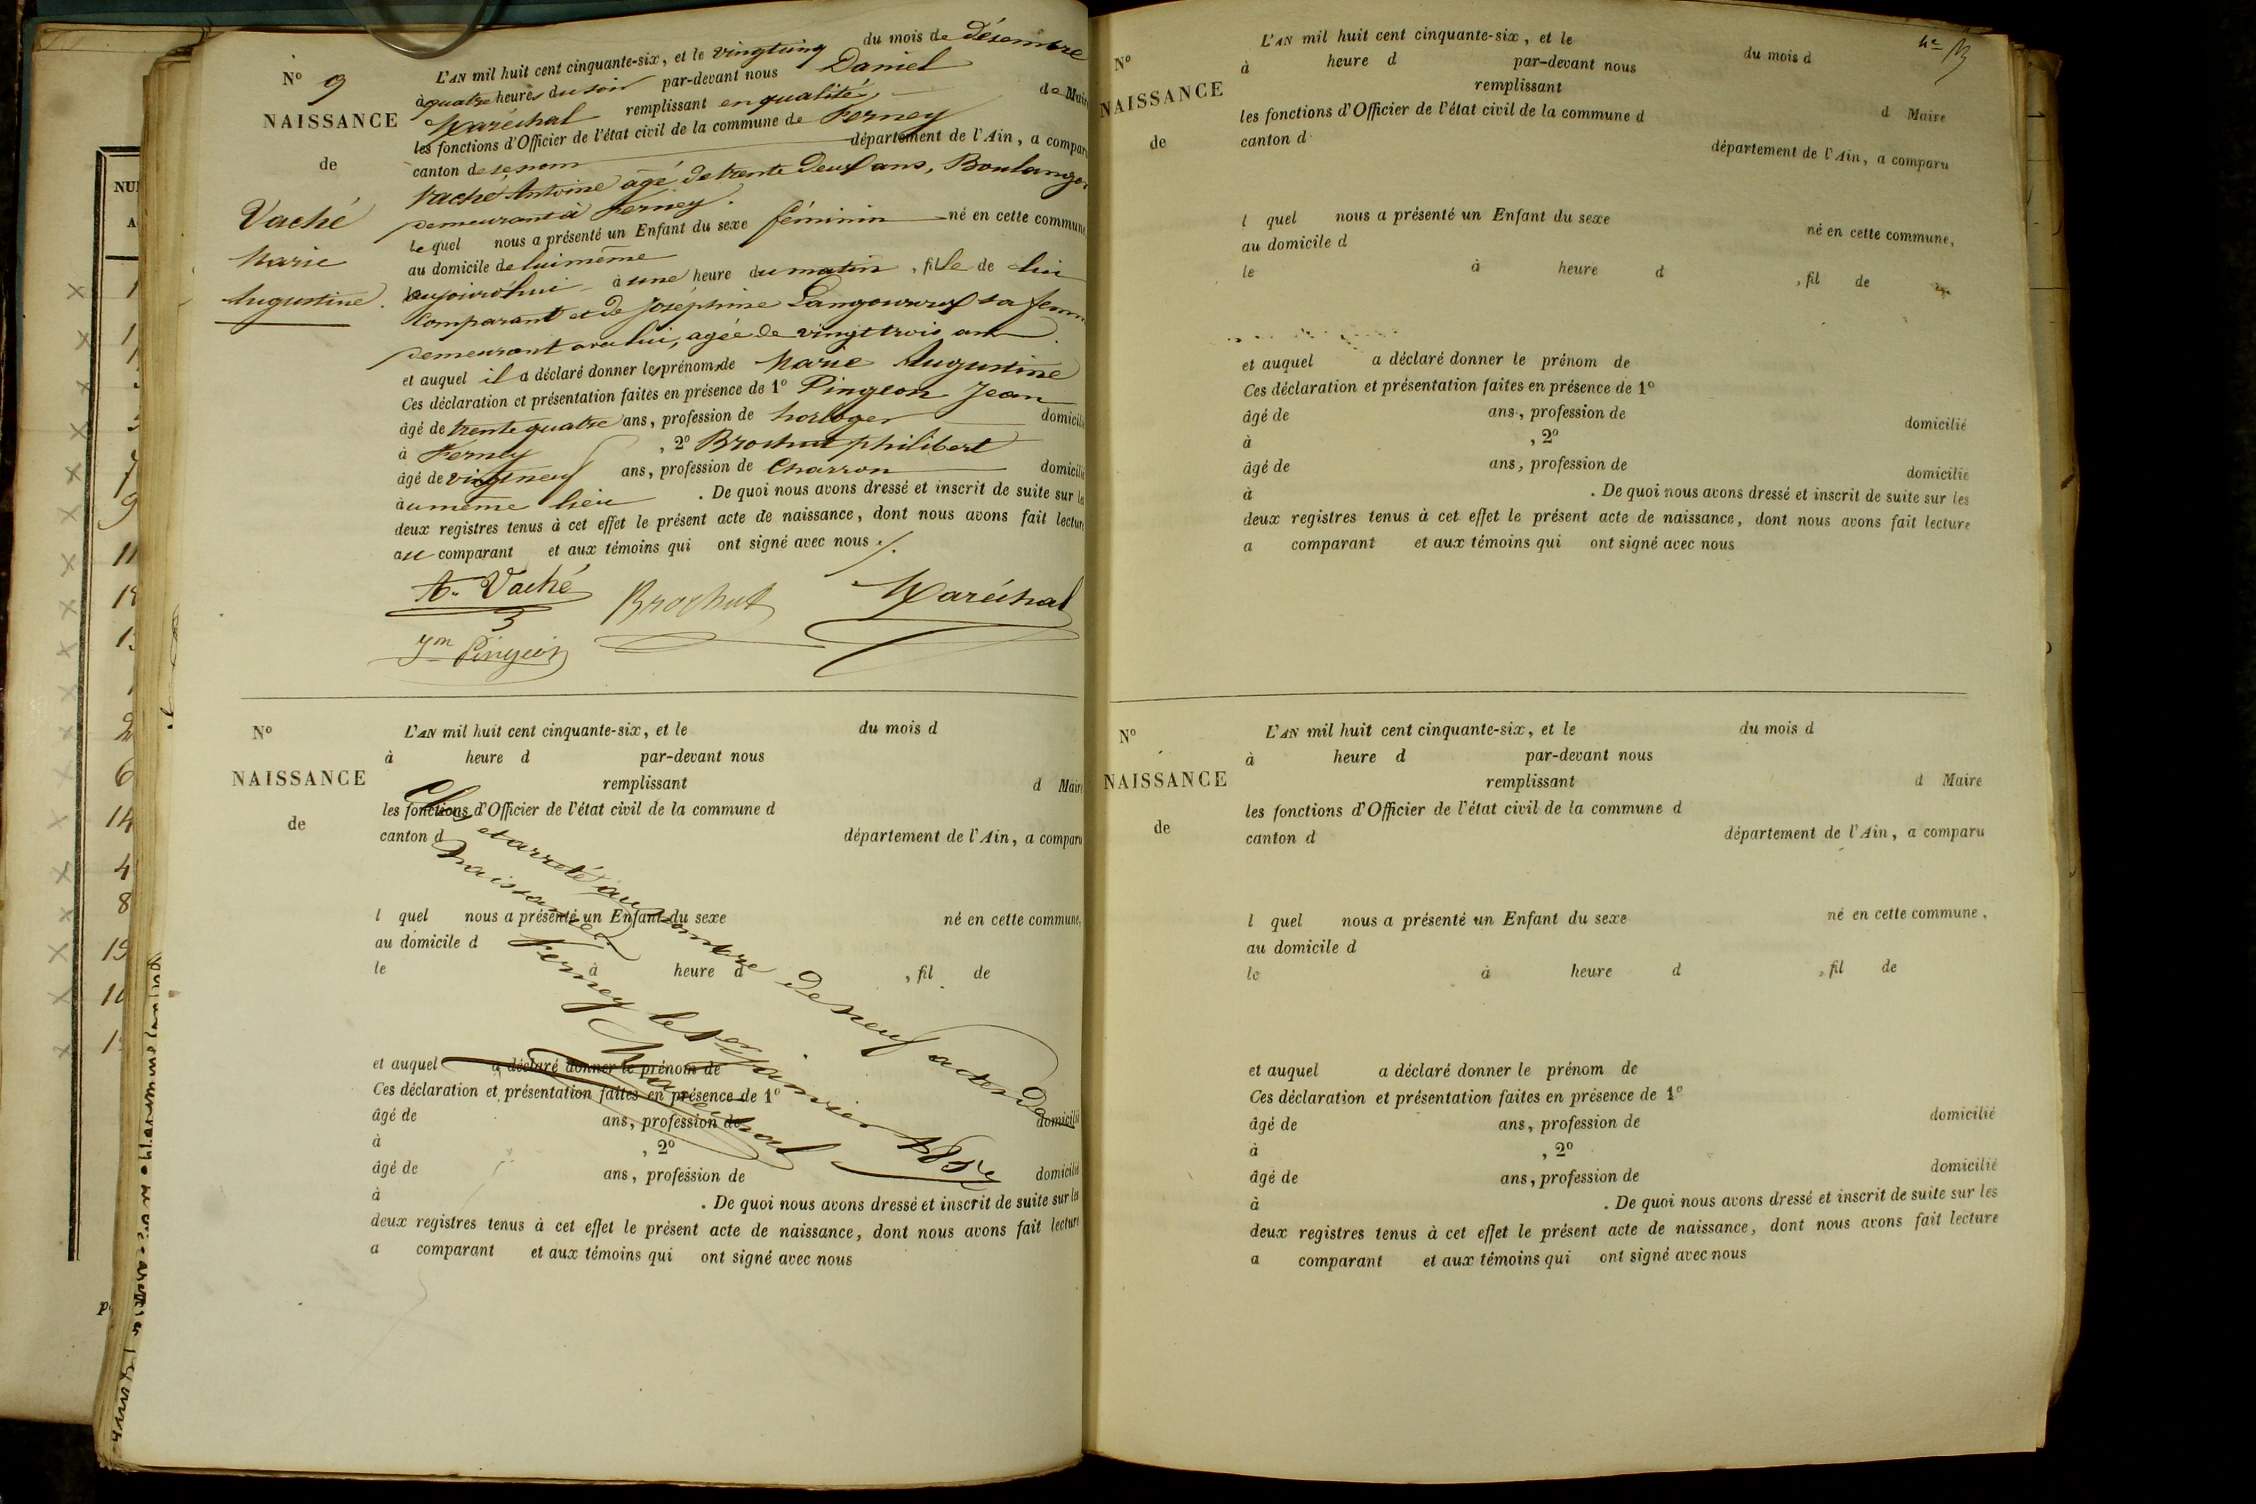 N° 9
NAISSANCE
de
Vaché
Marie
Augustine.
L'AN mil huit cent cinquante-six, et le vingt cinq du mois de Désembre
à quatre heures du soir par-devant nous Daniel
Maréchal remplissant en qualité de Maire
les fonctions d'Officier de l'état civil de la commune de Ferney
canton de ce nom département de l'Ain, a comparu
Vaché Antoine âgé de trente Deux ans, Boulanger
demeurant à Ferney.
le quel nous a présenté un Enfant du sexe féminin né en cette commune
au domicile de lui même
aujourd'hui à une heure du matin, fille de lui
Comparant et de Joséphine sa femme
demeurant avec lui, agée de vingt trois ans.
et auquel il a déclaré donner les prénoms de Marie Augustine
Ces déclaration et présentation faites en présence de 1° Pingeon Jean
âgé de trente quatre ans, profession de horloger domicilié
à Ferney, 2° Brochut philibert
âgé de vingt neuf ans, profession de Charron domicilié
à u même lieu. De quoi nous avons dressé et inscrit de suite sur les
deux registres tenus à cet effet le présent acte de naissance, dont nous avons fait lecture
au comparant et aux témoins qui ont signé avec nous ./.
A. Vaché Brochut Maréchal
Jn Pingeon
N°
NAISSANCE
de
L'AN mil huit cent cinquante-six, et le du mois d
à heure d par-devant nous
remplissant d Maire
les fonctions d'Officier de l'état civil de la commune d
canton d département de l'Ain, a comparu
l quel nous a présenté un Enfant du sexe né en cette commune,
au domicile d
le à heure d , fil de
et auquel a déclaré donner le prénom de
Ces déclaration et présentation faites en présence de 1°
âgé de ans, profession de domicilié
à , 2°
âgé de ans, profession de domicilié
à . De quoi nous avons dressé et inscrit de suite sur les
deux registres tenus à cet effet le présent acte de naissance, dont nous avons fait lecture
a comparant et aux témoins qui ont signé avec nous
Clos et arreté au nombre de neuf actes De
naissances
Ferney le 1er janvier 1857
Maréchal
N°
NAISSANCE
de
L'AN mil huit cent cinquante-six, et le du mois d
à heure d par-devant nous
remplissant d Maire
les fonctions d'Officier de l'état civil de la commune d
canton d département de l'Ain, a comparu
l quel nous a présenté un Enfant du sexe né en cette commune,
au domicile d
le à heure d , fil de
et auquel a déclaré donner le prénom de
Ces déclaration et présentation faites en présence de 1°
âgé de ans, profession de domicilié
à , 2°
âgé de ans, profession de domicilié
à . De quoi nous avons dressé et inscrit de suite sur les
deux registres tenus à cet effet le présent acte de naissance, dont nous avons fait lecture
a comparant et aux témoins qui ont signé avec nous
N°
NAISSANCE
de
L'AN mil huit cent cinquante-six, et le du mois d
à heure d par-devant nous
remplissant d Maire
les fonctions d'Officier de l'état civil de la commune d
canton d département de l'Ain, a comparu
l quel nous a présenté un Enfant du sexe né en cette commune,
au domicile d
le à heure d , fil de
et auquel a déclaré donner le prénom de
Ces déclaration et présentation faites en présence de 1°
âgé de ans, profession de domicilié
à , 2°
âgé de ans, profession de domicilié
à . De quoi nous avons dressé et inscrit de suite sur les
deux registres tenus à cet effet le présent acte de naissance, dont nous avons fait lecture
a comparant et aux témoins qui ont signé avec nous